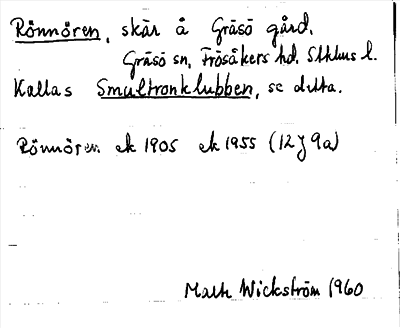 Rönnören, skär å Gräsö gård,
Gräsö sn, Frösåkers hd. Sthlms l.
Kallas Smultronklubben, se detta.
Rönnören ek 1905 ek 1955 (12 J 9a)
Malte Wickström 1960